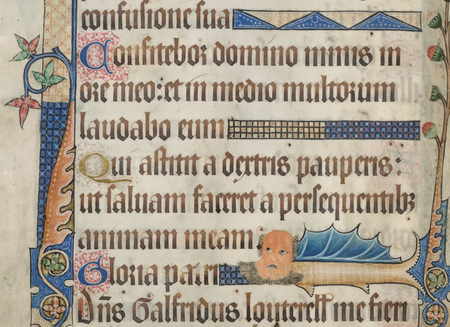 confusione sua
Confitebor domino nimis in
ore meo: et in medio multorum
laudabo eum
Qui astitit a dextris pauperis:
ut saluam faceret a persequentibꝫ
animam meam
Gloria patri
Dñs Galfridus louterell me fieri